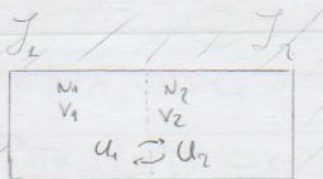 𝒯₁ 𝒯₂
N₁ N₂
V₁ V₂
U₁ ⇄ U₂